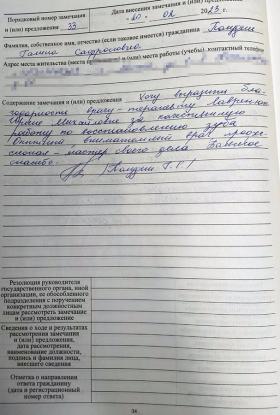 Порядковый номер замечания
и (или) предложения 33
Дата внесения замечания и (или) предложения
10. 02 2023 г.
Фамилия, собственное имя, отчество (если таковое имеется) гражданина
Галина
Адрес места жительства (места
и (или) места работы (учебы), контактный телефон
Содержание замечания и (или) предложения Хочу выразить бла-
годарность врачу-терапевту
Михайловне за качественную
работу по восстановлению зуба
внимательный врач профес-
сионал - мастер своего дела. Большое
спасибо.
Резолюция руководителя
государственного органа, иной
организации, ее обособленного
подразделения с поручением
конкретным должностным
лицам рассмотреть замечание
и (или) предложение
Сведения о ходе и результатах
рассмотрения замечания
и (или) предложения,
дата рассмотрения,
наименование должности,
подпись и фамилия лица,
внесшего сведения
Отметка о направлении
ответа гражданину
(дата и регистрационный
номер ответа)
34